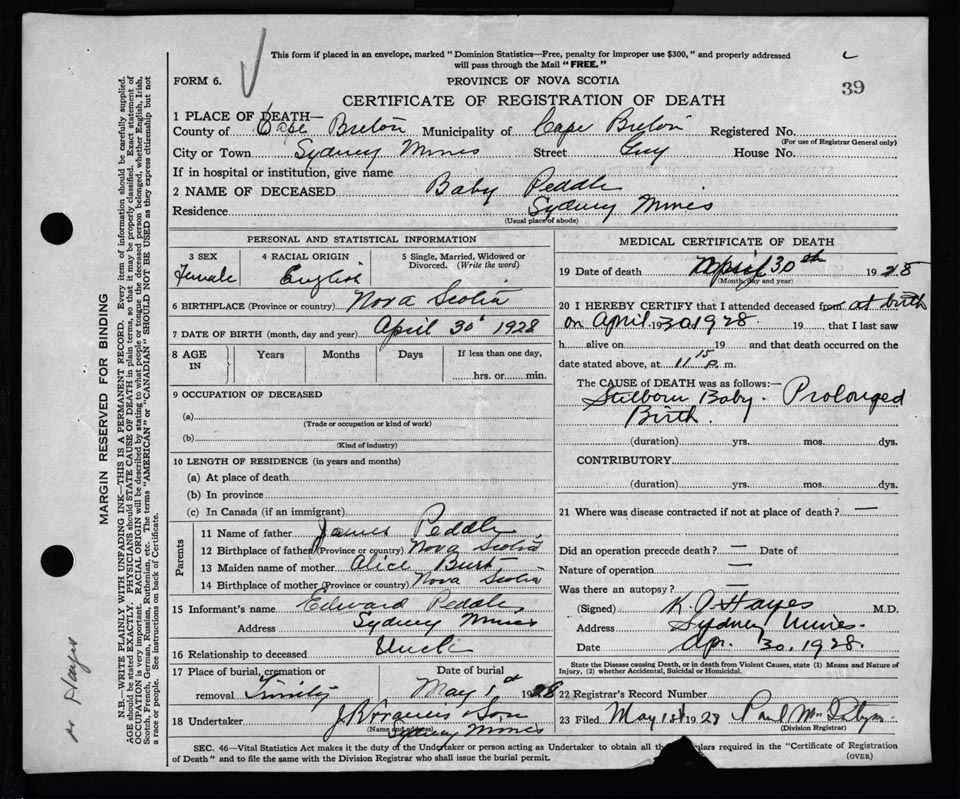 This form if placed in an envelope, marked "Dominion Statistics—Free, penalty for improper use $300," and properly addressed
will pass through the Mail "FREE."
FORM 6.
PROVINCE OF NOVA SCOTIA
39
CERTIFICATE OF REGISTRATION OF DEATH
1 PLACE OF DEATH—
County of Cape Breton Municipality of Cape Breton Registered No.
(For use of Registrar General only)
City or Town Sydney Mines Street House No.
If in hospital or institution, give name
2 NAME OF DECEASED Baby Peddle
Residence Sydney Mines
(Usual place of abode)
PERSONAL AND STATISTICAL INFORMATION
3 SEX Female
4 RACIAL ORIGIN English
5 Single, Married, Widowed or Divorced. (Write the word)
6 BIRTHPLACE (Province or country) Nova Scotia
7 DATE OF BIRTH (month, day and year) April 30 1928
8 AGE IN Years Months Days If less than one day, hrs. or min.
9 OCCUPATION OF DECEASED
(a)
(Trade or occupation or kind of work)
(b)
(Kind of industry)
10 LENGTH OF RESIDENCE (in years and months)
(a) At place of death
(b) In province
(c) In Canada (if an immigrant)
Parents
11 Name of father James Peddle
12 Birthplace of father (Province or country) Nova Scotia
13 Maiden name of mother Alice
14 Birthplace of mother (Province or country) Nova Scotia
15 Informant's name Edward Peddle
Address Sydney Mines
16 Relationship to deceased Uncle
17 Place of burial, cremation or removal Trinity
Date of burial May 1st 1928
18 Undertaker J R Francis & Son
(Name and address) Sydney Mines
MEDICAL CERTIFICATE OF DEATH
19 Date of death April 30th 1928
(Month, day and year)
20 I HEREBY CERTIFY that I attended deceased from at birth
on April 30 1928 19 that I last saw
h alive on 19 and that death occurred on the
date stated above, at 11 15 p. m.
The CAUSE of DEATH was as follows:—
Stillborn Baby. Prolonged
Birth.
(duration) yrs. mos. dys.
CONTRIBUTORY
(duration) yrs. mos. dys.
21 Where was disease contracted if not at place of death? —
Did an operation precede death? — Date of
Nature of operation —
Was there an autopsy? —
(Signed) Hayes M.D.
Address Sydney Mines.
Date Apr. 30, 1928.
State the Disease causing Death, or in death from Violent Causes, state (1) Means and Nature of Injury, (2) whether Accidental, Suicidal or Homicidal.
22 Registrar's Record Number
23 Filed May 1st 1928 Paul
(Division Registrar)
SEC. 46—Vital Statistics Act makes it the duty of the Undertaker or person acting as Undertaker to obtain all required in the "Certificate of Registration
of Death" and to file the same with the Division Registrar who shall issue the burial permit.
(OVER)
MARGIN RESERVED FOR BINDING
N.B.—WRITE PLAINLY WITH UNFADING INK—THIS IS A PERMANENT RECORD. Every item of information should be carefully supplied.
AGE should be stated EXACTLY. PHYSICIANS should STATE CAUSE OF DEATH in plain terms, so that it may be properly classified. Exact statement of
OCCUPATION is very important. RACIAL ORIGIN will be described by stating to what people or tongue the deceased person belonged, whether English, Irish,
Scotch, French, German, Russian, Ruthenian, etc. The terms "AMERICAN" or "CANADIAN" SHOULD NOT BE USED as they express citizenship but not
a race or people. See instructions on back of Certificate.
Hayes